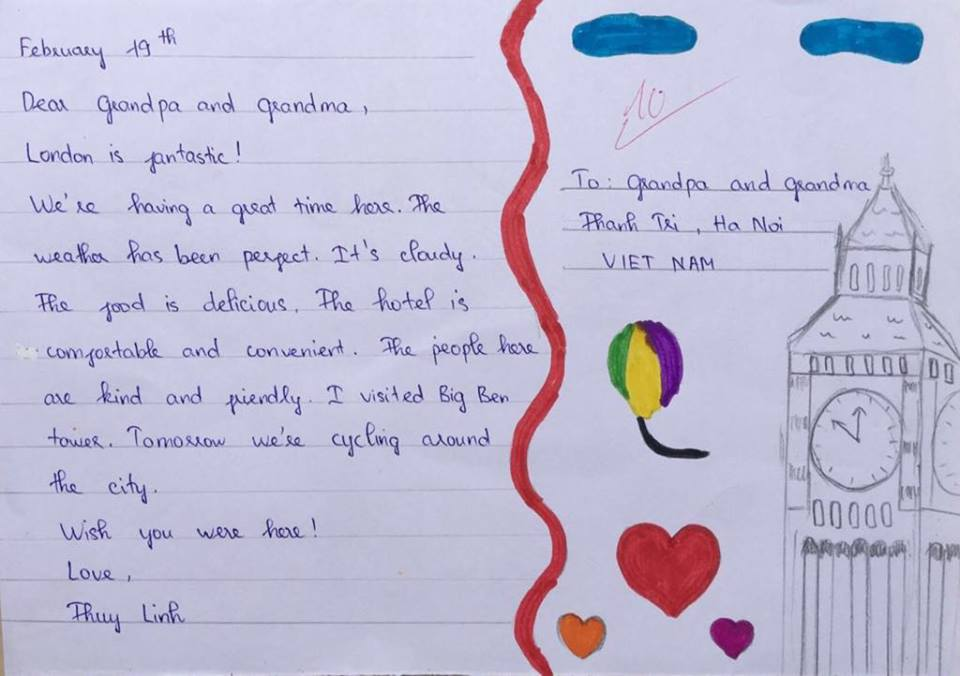 February 19th
Dear Grandpa and Grandma,
London is fantastic!
We're having a great time here. The
weather has been perfect. It's cloudy.
The food is delicious. The hotel is
comfortable and convenient. The people here
are kind and friendly. I visited Big Ben
tower. Tomorrow we're cycling around
the city.
Wish you were here!
Love,
Thuy Linh
10
To: Grandpa and Grandma
Thanh Tri, Ha Noi
VIET NAM